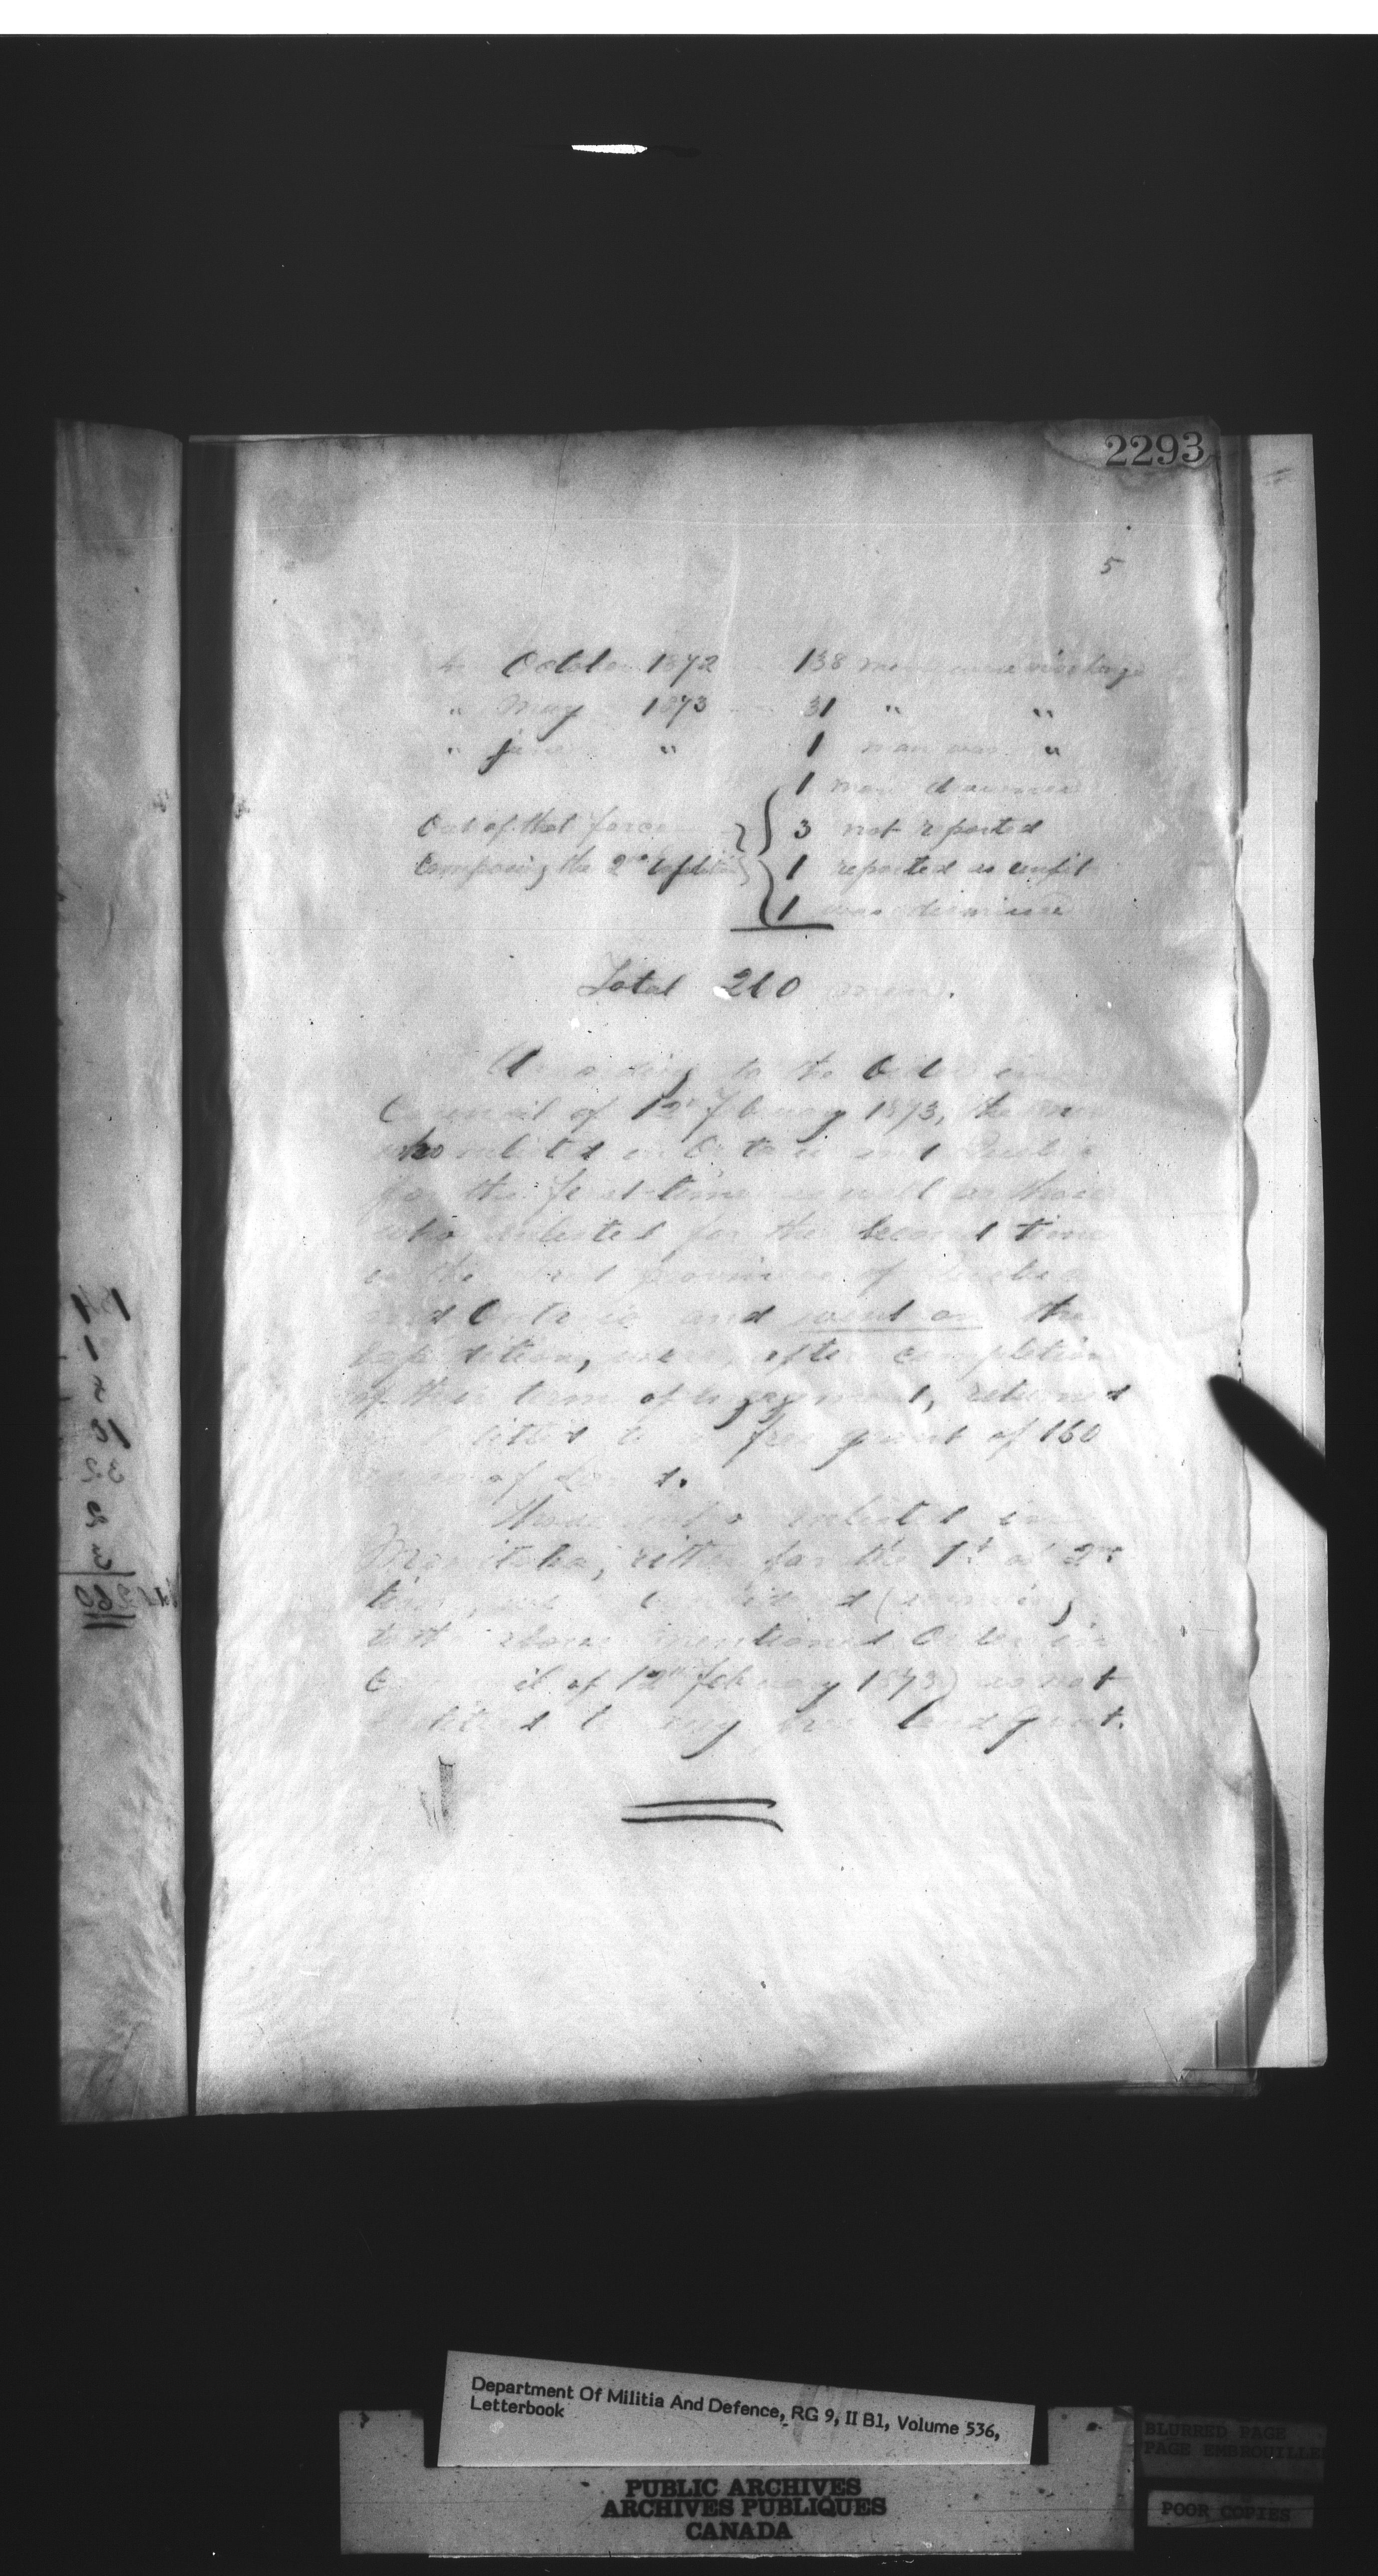 2293
5
In October 1872 138 men were discharged
" May 1873 31 " "
" June " 1 man was "
1 man drowned
Out of that force 3 not reported
Composing the 2nd Expedition 1 reported as unfit
1 was dismissed
Total 210 men.
According to the Order in
Council of 12th February 1873, the men
who enlisted in Ontario and Quebec
for the first time as well as those
who enlisted for the second time
in the said provinces of Quebec
and Ontario and went on the
Expedition, were, after completion
of their term of engagement,
entitled to a free grant of 160
acres of Land.
Those who enlisted in
Manitoba, either for the 1st or 2nd
time, were considered (
to the above mentioned Order in
Council of 12th February 1873) as not
entitled to any free land grant.
Department Of Militia And Defence, RG 9, II B1, Volume 536,
Letterbook
PUBLIC ARCHIVES
ARCHIVES PUBLIQUES
CANADA
BLURRED PAGE
PAGE EMBROUILLEE
POOR COPIES